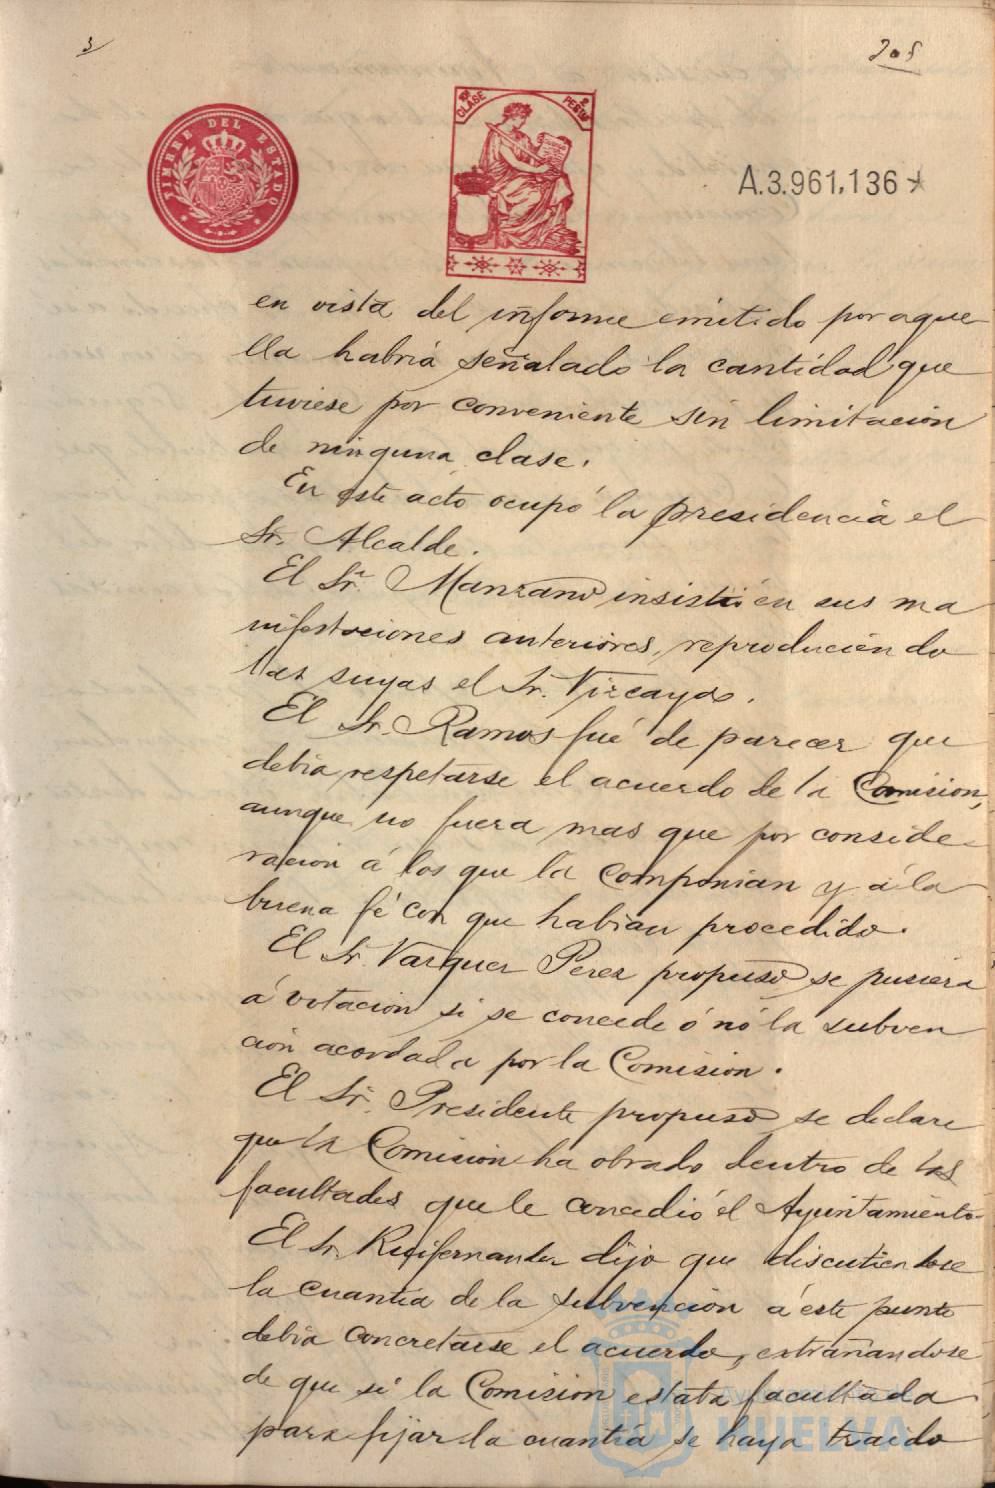 3
205
TIMBRE DEL ESTADO
10ª CLASE 2 PESETAS
A.3.961,136*
en vista del informe emitido por aque
lla habria señalado la cantidad que
tuviese por conveniente sin limitacion
de ninguna clase.
En este acto ocupó la presidencia el
Sr. Alcalde.
El Sr. Manzano insistió en sus ma
nifestaciones anteriores, reproduciendo
las suyas el Sr. Vizcaya.
El Sr. Ramos fué de parecer que
debia respetarse el acuerdo de la Comision,
aunque no fuera mas que por conside-
racion á los que la componian y á la
buena fé con que habian procedido.
El Sr. Vazquez Perez propuso se pusiera
á votacion si se concede ó nó la subven
cion acordada por la Comision.
El Sr. Presidente propuso se declare
que la Comision ha obrado dentro de las
facultades que le concedió el Ayuntamiento.
El Sr. Ruifernandez dijo que discutiendose
la cuantia de la subvencion á este punto
debia concretarse el acuerdo, extrañandose
de que si la Comision estaba facultada
para fijar la cuantia se haya traido
Ayuntamiento de
HUELVA